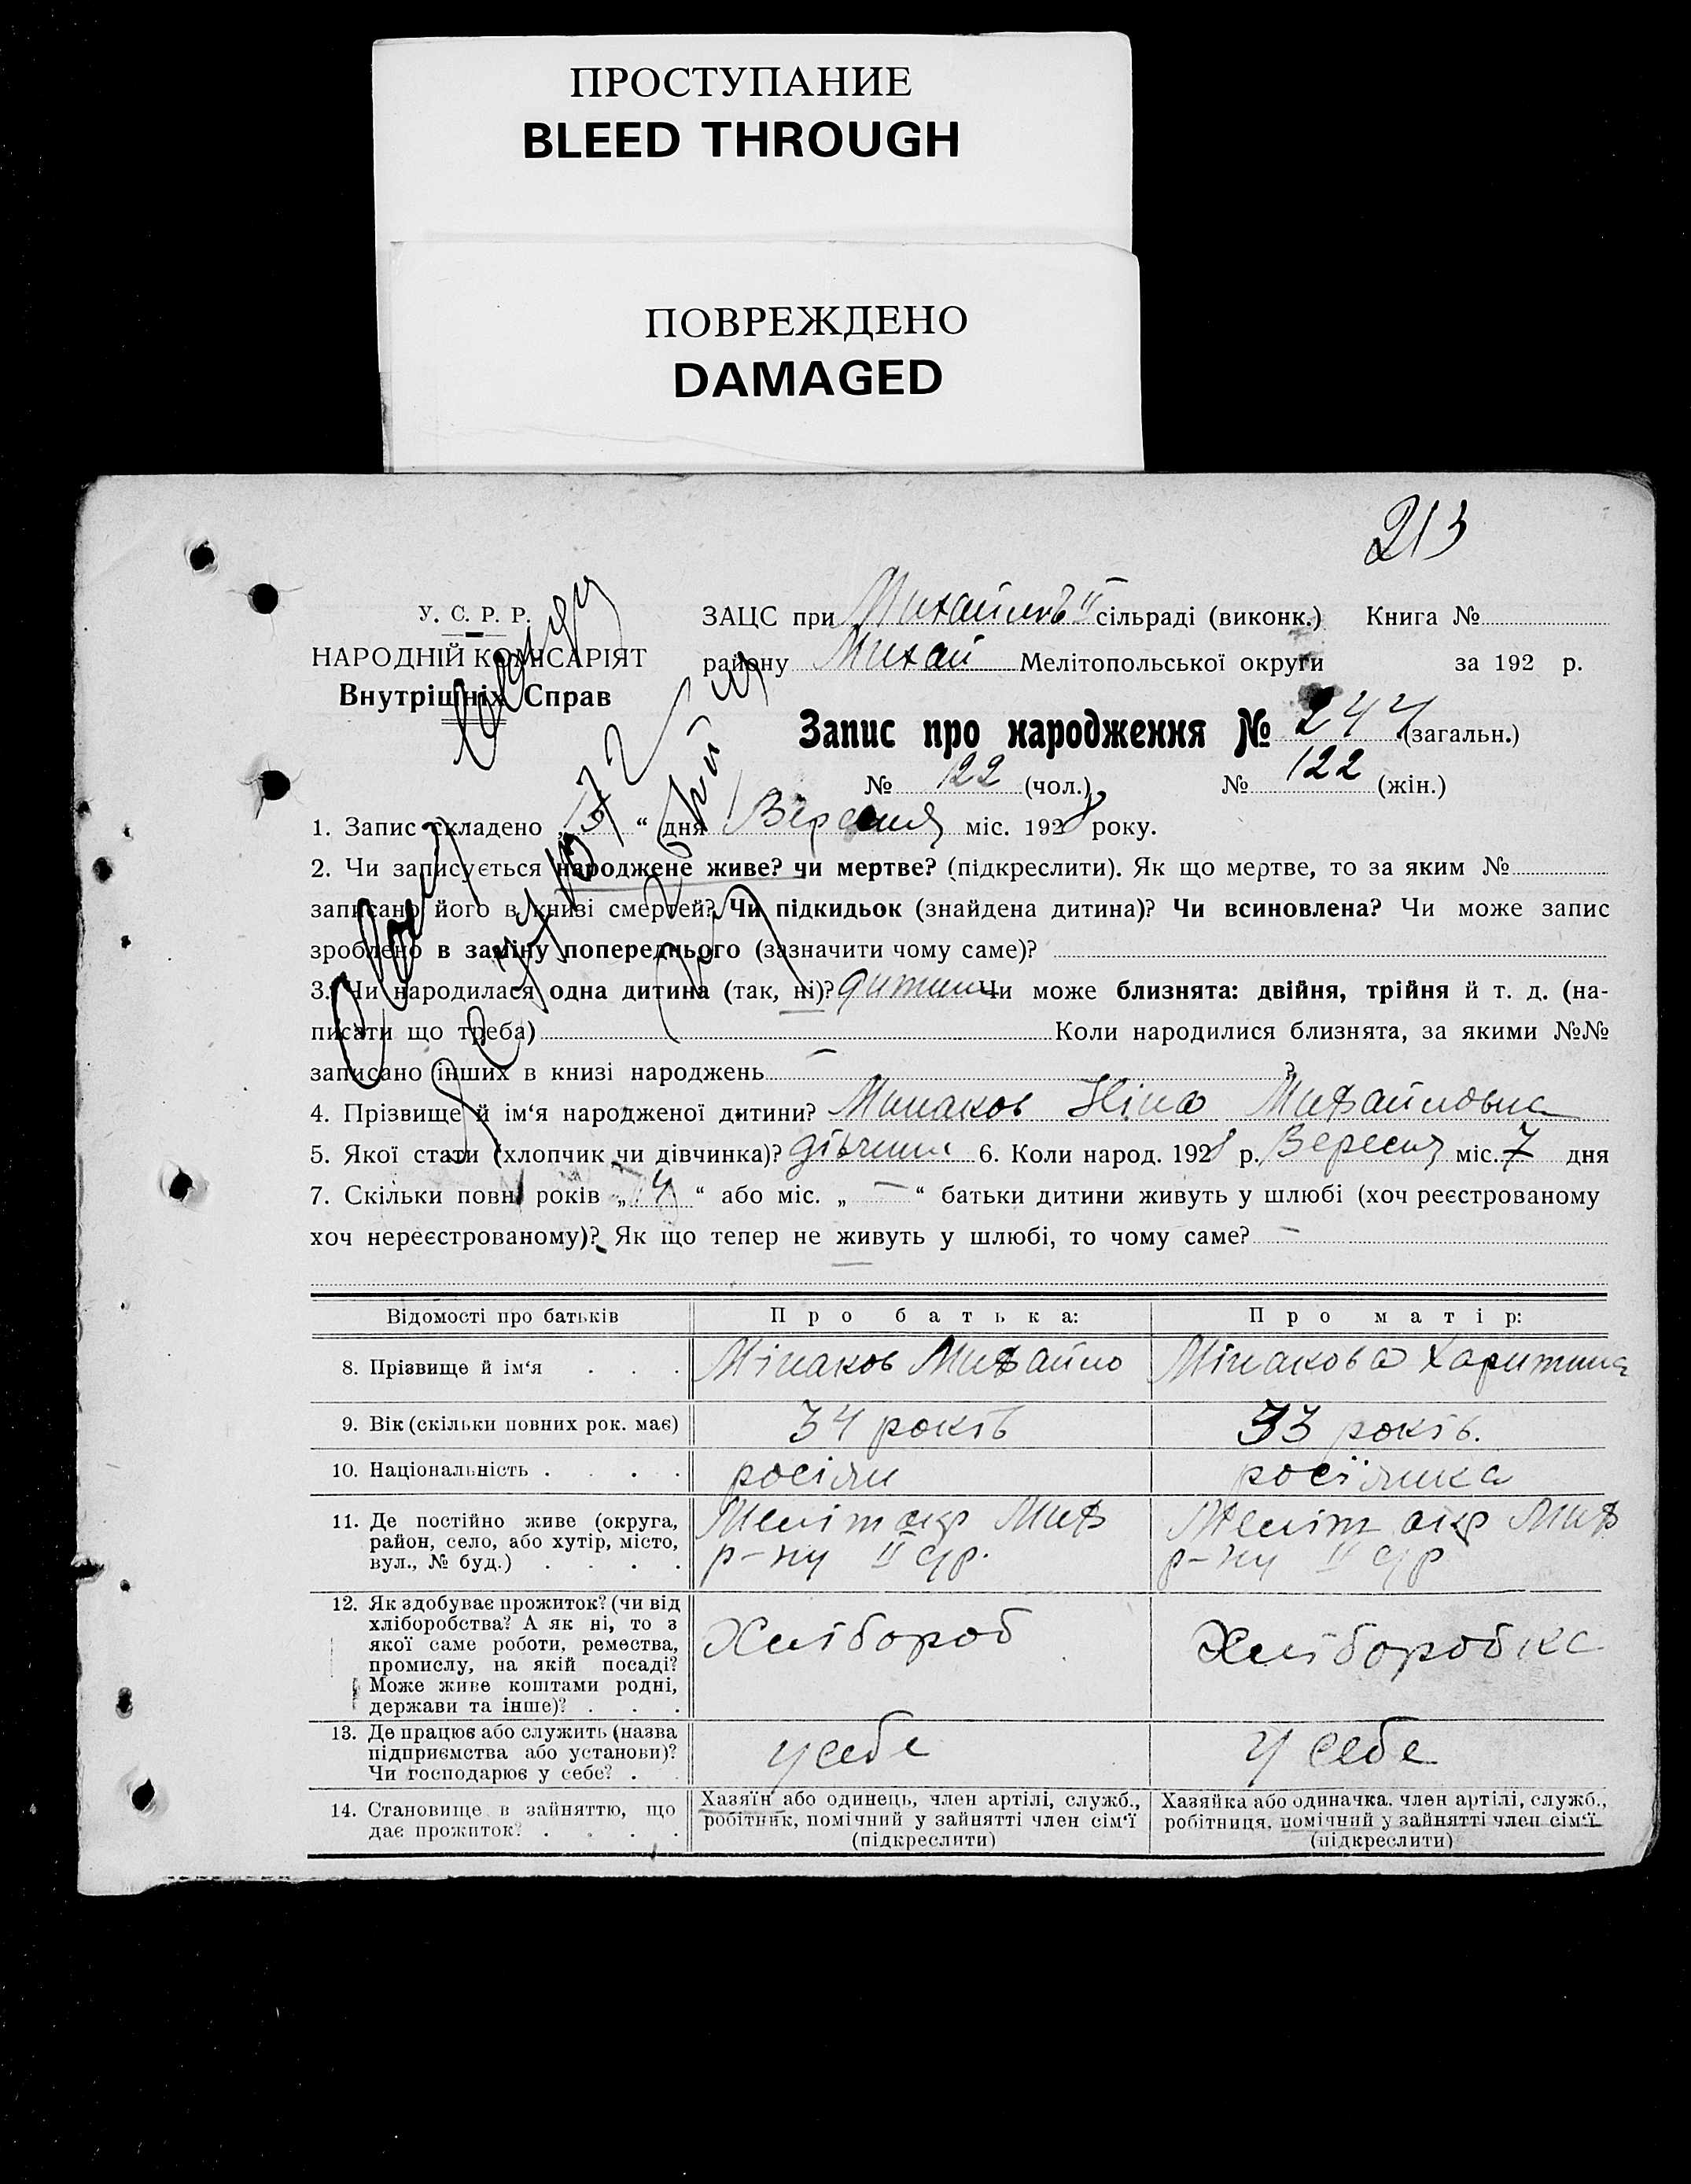 ПРОСТУПАНИЕ
BLEED THROUGH
ПОВРЕЖДЕНО
DAMAGED
213
У. С. Р. Р.
НАРОДНІЙ КОМІСАРІЯТ
Внутрішніх Справ
ЗАЦС при Михайлов II сільраді (виконк.) Книга №
району Михай Мелітопольської округи за 192 р.
Запис про народження № 244 (загальн.)
№ 122 (чол.) № 122 (жін.)
1. Запис складено „ “ дня Вересня міс. 1928 року.
2. Чи записується народжене живе? чи мертве? (підкреслити). Як що мертве, то за яким №
записано його в книзі смертей? Чи підкидьок (знайдена дитина)? Чи всиновлена? Чи може запис
зроблено в заміну попереднього (зазначити чому саме)?
3. Чи народилася одна дитина (так, ні)? Чи може близнята: двійня, трійня й т. д. (на-
писати що треба) Коли народилися близнята, за якими №№
записано інших в книзі народжень — ?
4. Прізвище й ім‘я народженої дитини? Минаков Ніна Михайловна
5. Якої стати (хлопчик чи дівчинка)? дівчина 6. Коли народ. 1928 р. Вересня міс. 7 дня
7. Скільки повн років „ 4 “ або міс. „ — “ батьки дитини живуть у шлюбі (хоч реєстрованому
хоч нереєстрованому)? Як що тепер не живуть у шлюбі, то чому саме? —
Відомості про батьків Про батька: Про матір:
8. Прізвище й ім‘я . . . Мінаков Михайло Мінакова Харитина
9. Вік (скільки повних рок. має) 34 років 33 років.
10. Національність . . . . росіян росіянка
11. Де постійно живе (округа, Меліт окр Мих Меліт окр Мих
район, село, або хутір, місто, р-ну II с/р. р-ну II с/р
вул., № буд.) . . . .
12. Як здобуває прожиток? (чи від
хліборобства? А як ні, то з
якої саме роботи, ремества, Хлібороб Хліборобка
промислу, на якій посаді?
Може живе коштами родні,
держави та інше)? . . .
13. Де працює або служить (назва
підприємства або установи)? у себе у себе
Чи господарює у себе? . .
14. Становище в зайняттю, що Хазяїн або одинець, член артілі, служб., Хазяйка або одиначка. член артілі, служб.,
дає прожиток? . . . . робітник, помічний у зайнятті член сім‘ї робітниця, помічний у зайнятті член сім‘ї
(підкреслити) (підкреслити)